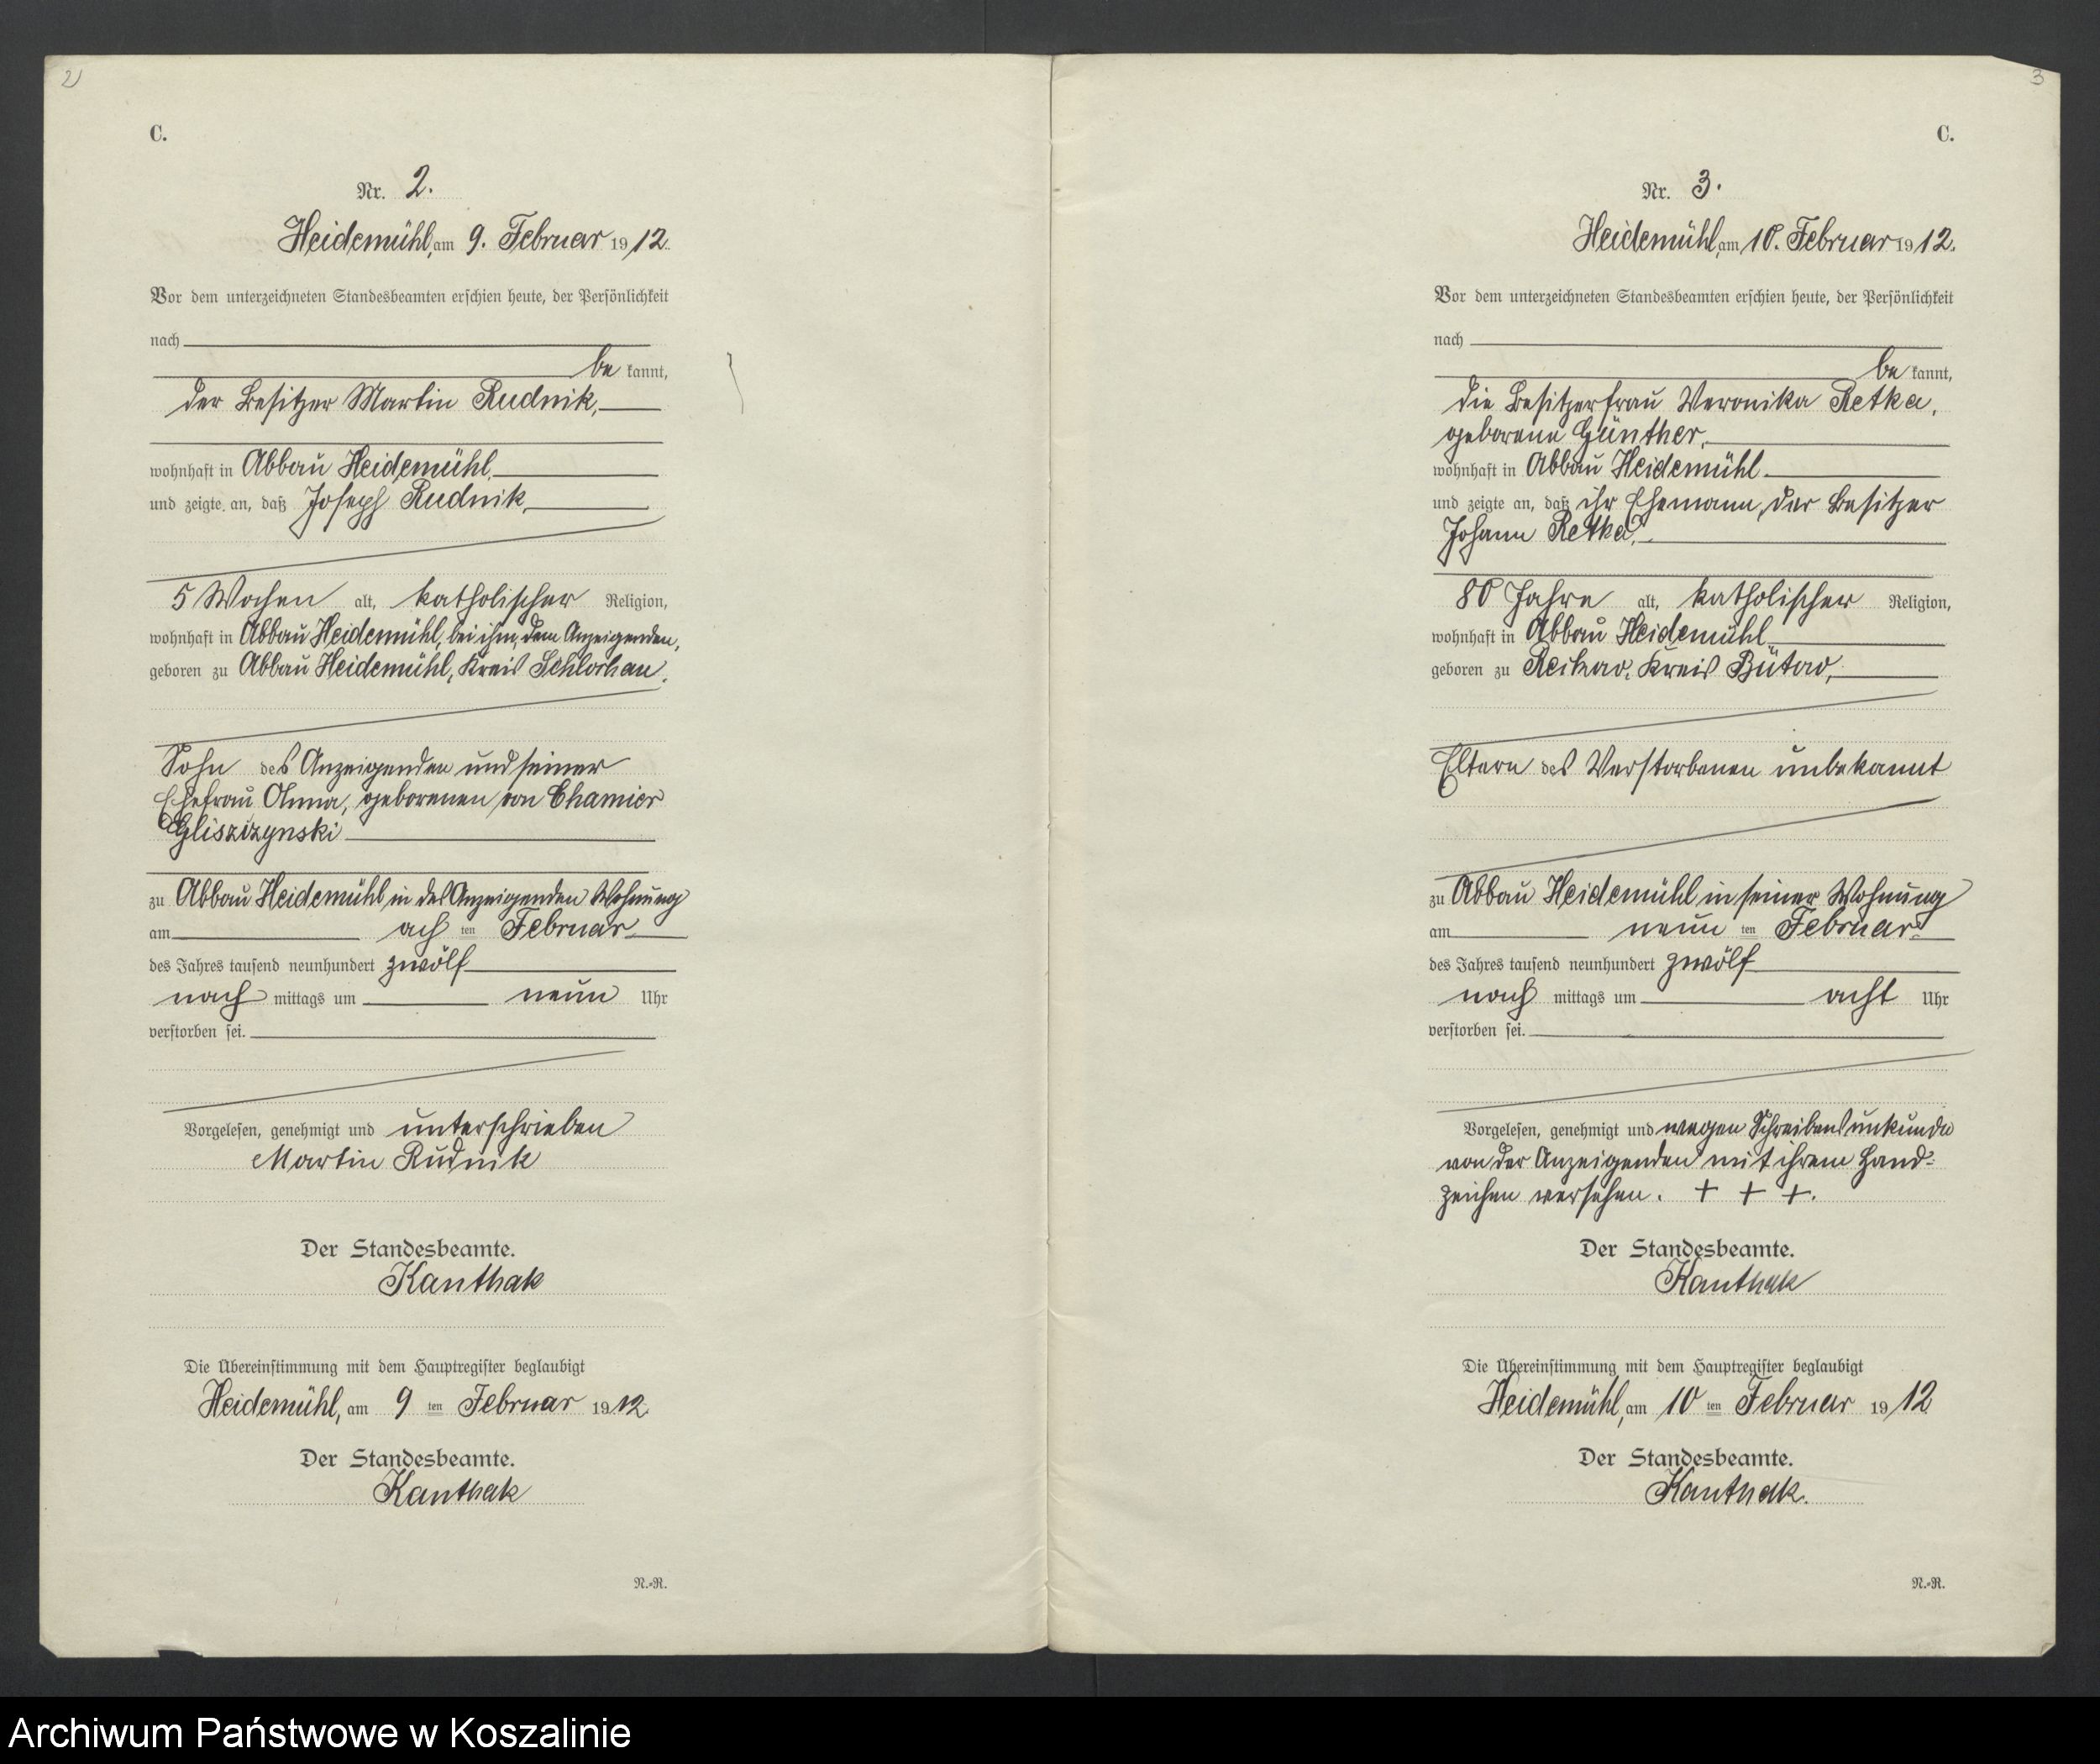 2
C.
Nr. 2.
Heidemühl, am 9. Februar 1912.
Vor dem unterzeichneten Standesbeamten erschien heute, der Persönlichkeit
nach
be kannt,
der Besitzer Martin Rudnik,
wohnhaft in Abbau Heidemühl,
und zeigte an, daß Joseph Rudnik,
5 Wochen alt, katholischer Religion,
wohnhaft in Abbau Heidemühl, bei ihm, dem Anzeigenden,
geboren zu Abbau Heidemühl, Kreis Schlochau,
Sohn des Anzeigenden und seiner
Ehefrau Anna, geborenen von Chamier
Gliszizynski
zu Abbau Heidemühl in des Anzeigenden Wohnung
am ach ten Februar
des Jahres tausend neunhundert zwölf
nach mittags um neun Uhr
verstorben sei.
Vorgelesen, genehmigt und unterschrieben
Martin Rudnik
Der Standesbeamte.
Kanthak
Die Übereinstimmung mit dem Hauptregister beglaubigt
Heidemühl, am 9 ten Februar 1912.
Der Standesbeamte.
Kanthak
N.-R.
3
C.
Nr. 3.
Heidemühl, am 10. Februar 1912.
Vor dem unterzeichneten Standesbeamten erschien heute, der Persönlichkeit
nach
be kannt,
die Besitzerfrau Veronika Retka,
geborene Günther,
wohnhaft in Abbau Heidemühl
und zeigte an, daß ihr Ehemann, der Besitzer
Johann Retka,
80 Jahre alt, katholischer Religion,
wohnhaft in Abbau Heidemühl
geboren zu Kreis Bütow,
Eltern des Verstorbenen unbekannt
zu Abbau Heidemühl in seiner Wohnung
am neun ten Februar
des Jahres tausend neunhundert zwölf
nach mittags um acht Uhr
verstorben sei.
Vorgelesen, genehmigt und wegen Schreibensunkunde
von der Anzeigenden mit ihrem Hand-
zeichen versehen. + + +.
Der Standesbeamte.
Kanthak
Die Übereinstimmung mit dem Hauptregister beglaubigt
Heidemühl, am 10 ten Februar 1912
Der Standesbeamte.
Kanthak.
N.-R.
Archiwum Państwowe w Koszalinie